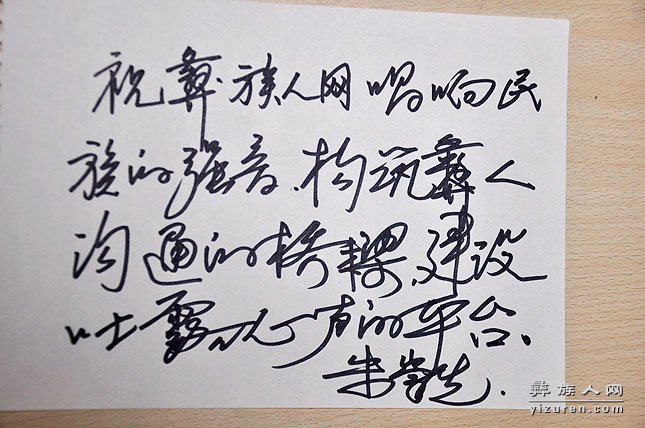 祝彝族人网唱响民
族的强音、构筑彝人
沟通的桥梁、建设
吐露心声的平台、
朱崇先.
彝族人网
yizuren.com